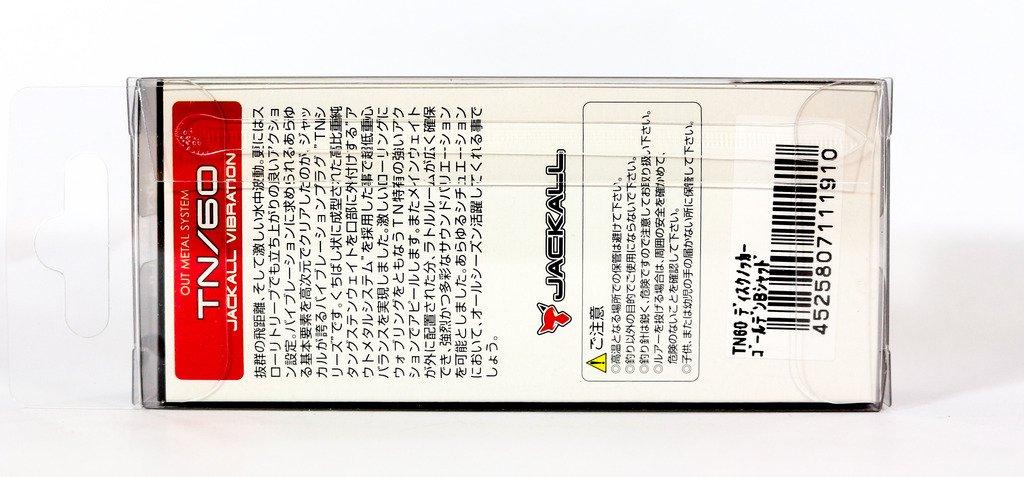 OUT METAL SYSTEM
TN/60
JACKALL VIBRATION
抜群の飛距離、そして激しい水中波動。更にはス
ローリトリーブでも立ち上がりの良いアクショ
ン設定。バイブレーションに求められる、あらゆ
る基本要素を高次元でクリアしたのが、ジャッ
カルが誇るバイブレーションプラグ、"TNシ
リーズ"です。くちばし状に成型された高比重純
タングステンウェイトを口部に外付けする"ア
ウトメタルシステム"を採用した事で超低重心
バランスを実現しました。激しいローリングに
ウォブリングをともなうTN特有の強いアク
ションでアピールします。またメインウェイト
が外に配置された分、ラトルルームが広く確保
でき、強烈かつ多彩なサウンドバリエーション
を可能としました。あらゆるシチュエーション
において、オールシーズン活躍してくれる事で
しょう。
JACKALL
ご注意
○高温となる場所での保管は避けて下さい。
○釣り以外の目的でご使用にならないで下さい。
○釣り針は鋭く、危険ですので注意してお取り扱い下さい。
○ルアーを投げる場合は、周囲の安全を確かめて、
危険のないことを確認して下さい。
○子供、または幼児の手の届かない所に保管して下さい。
TN60 ディスクノッカー
ゴールデンBシャッド
4525807111910